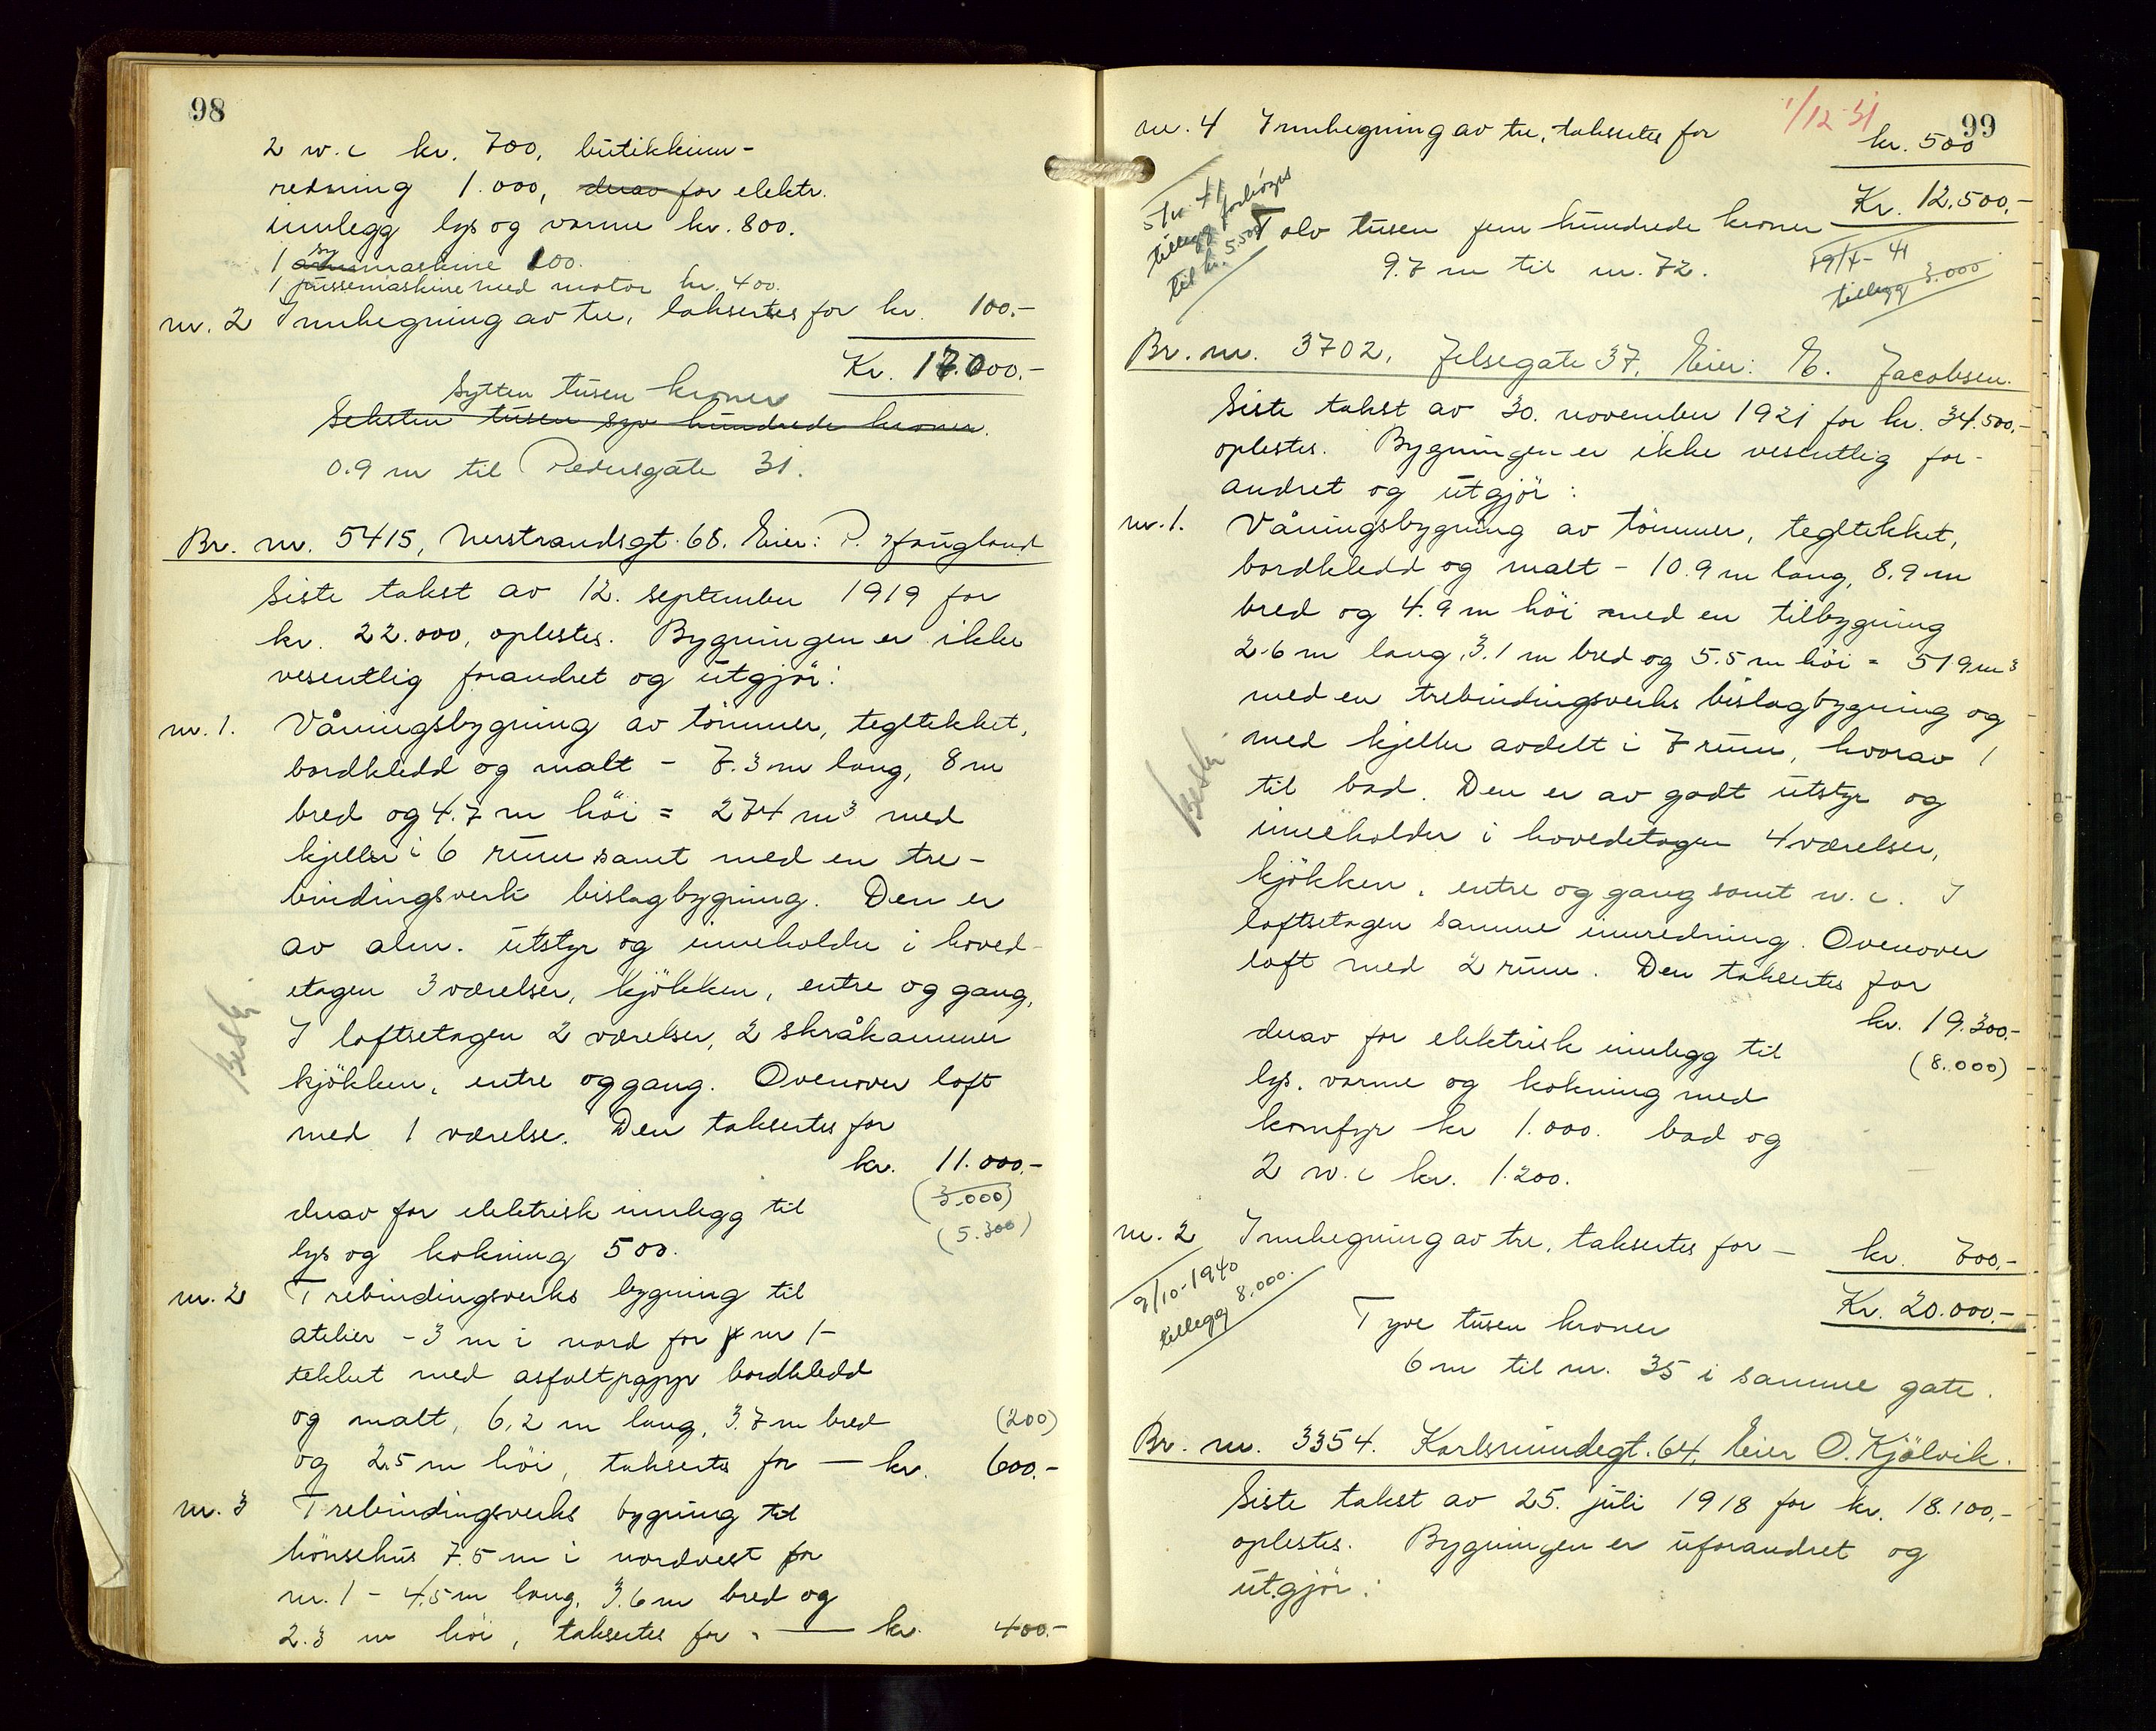 98
2 w.c kr. 700, butikkinn-
redning 1.000, derav for elektr.
innlegg lys og varme kr. 800.
1 symaskine 100.
1 pussemaskine med motor kr. 400.
nr. 2 Innhegning av tre, taksertes for kr. 100.-
Kr. 17.000.-
Sytten tusen kroner
Seksten tusen syv hundrede kroner.
0.9 m til Pedersgate 31.
Br. nr. 5415, Nerstrandsgt. 68. Eier: P. Haugland
Siste takst av 12. september 1919 for
kr. 22.000, oplestes. Bygningen er ikke
vesentlig forandret og utgjör:
nr. 1. Våningsbygning av tömmer, tegltekket,
bordkledd og malt - 7.3 m lang, 8 m
bred og 4.7 m höi = 274 m³ med
kjeller i 6 rum samt med en tre-
bindingsverk bislagbygning. Den er
av alm. utstyr og inneholder i hoved-
etagen 3 værelser, kjökken, entre og gang,
I loftsetagen 2 værelser, 2 skråkammer
kjökken, entre og gang. Ovenover loft
med 1 værelse. Den taksertes for
kr. 11.000.-
(3.000)
derav for elektrisk innlegg til
(5.300)
lys og kokning 500.
nr. 2 Trebindingsverks bygning til
atelier - 3 m i nord for nr 1 -
tekket med asfaltpapyr bordkledd
og malt, 6,2 m lang, 3.7 m bred (200)
og 2.5 m höi, taksertes for — kr. 600.-
nr. 3 Trebindingsverks bygning til
hönsehus 7.5 m i nordvest for
nr. 1 - 4.5 m lang, 3.6 m bred og
2.3 m höi, taksertes for — kr. 400.-
besk.
1/12 31
99
nr. 4 Innhegning av tre, taksertes for kr. 500
Kr. 12.500.-
5/11-41
tillegg forhöyes
til kr. 5.500
Tolv tusen fem hundrede kroner
9.7 m til nr. 72.
19/4-41
tillegg 3.000
Br. nr. 3702, Jelsegate 37, Eier: E. Jacobsen.
Siste takst av 30. november 1921 for kr. 34.500.-
oplestes. Bygningen er ikke vesentlig for-
andret og utgjör:
nr. 1. Våningsbygning av tömmer, tegltekket,
bordkledd og malt - 10.9 m lang, 8.9 m
bred og 4.9 m höi med en tilbygning
2.6 m lang, 3.1 m bred og 5.5 m höi = 519 m³
med en trebindingsverks bislagbygning og
med kjeller avdelt i 7 rum, hvorav 1
til bad. Den er av godt utstyr og
inneholder i hovedetagen 4 værelser,
kjökken, entre og gang samt w.c. I
loftsetagen samme innredning. Ovenover
loft med 2 rum. Den taksertes for
kr. 19.300.-
derav for elektrisk innlegg til
(8.000)
lys, varme og kokning med
komfyr kr 1.000. bad og
2 w.c kr. 1.200.
besk.
nr. 2 Innhegning av tre, taksertes for — kr. 700.-
9/10-1940
tillegg 8.000.
Kr. 20.000.-
Tyve tusen kroner
6 m til nr. 35 i samme gate.
Br. nr. 3354. Karlsmindegt. 64, Eier O. Kjölvik.
Siste takst av 25. juli 1918 for kr. 18.100.-
oplestes. Bygningen er uforandret og
utgjör: